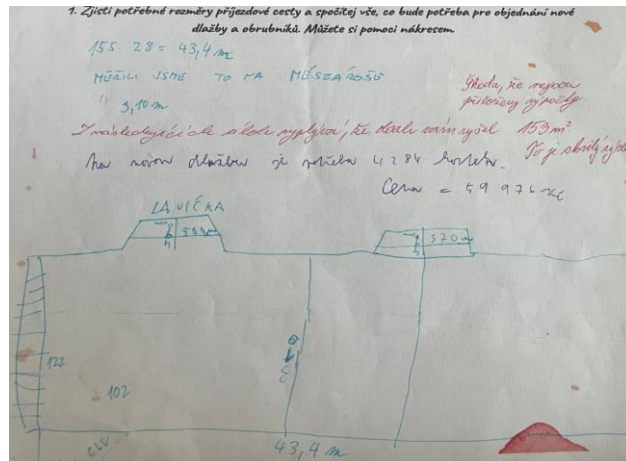 1. Zjisti potřebné rozměry příjezdové cesty a spočítej vše, co bude potřeba pro objednání nové
dlažby a obrubníků. Můžete si pomoci nákresem.
155. 28 = 43,4 m
MĚŘILI JSME TO NA MÉSZÁROŠE
Škoda, že nejsou
přiloženy výpočty
3,10 m
Z následujících úloh vyplývá, že obsah vám vyšel 153 m²
To je skvělý
Na novou dlažbu je potřeba 4284 kostek.
Cena = 59 976 Kč
LAVIČKA
504m
370m
122
102
43,4 m